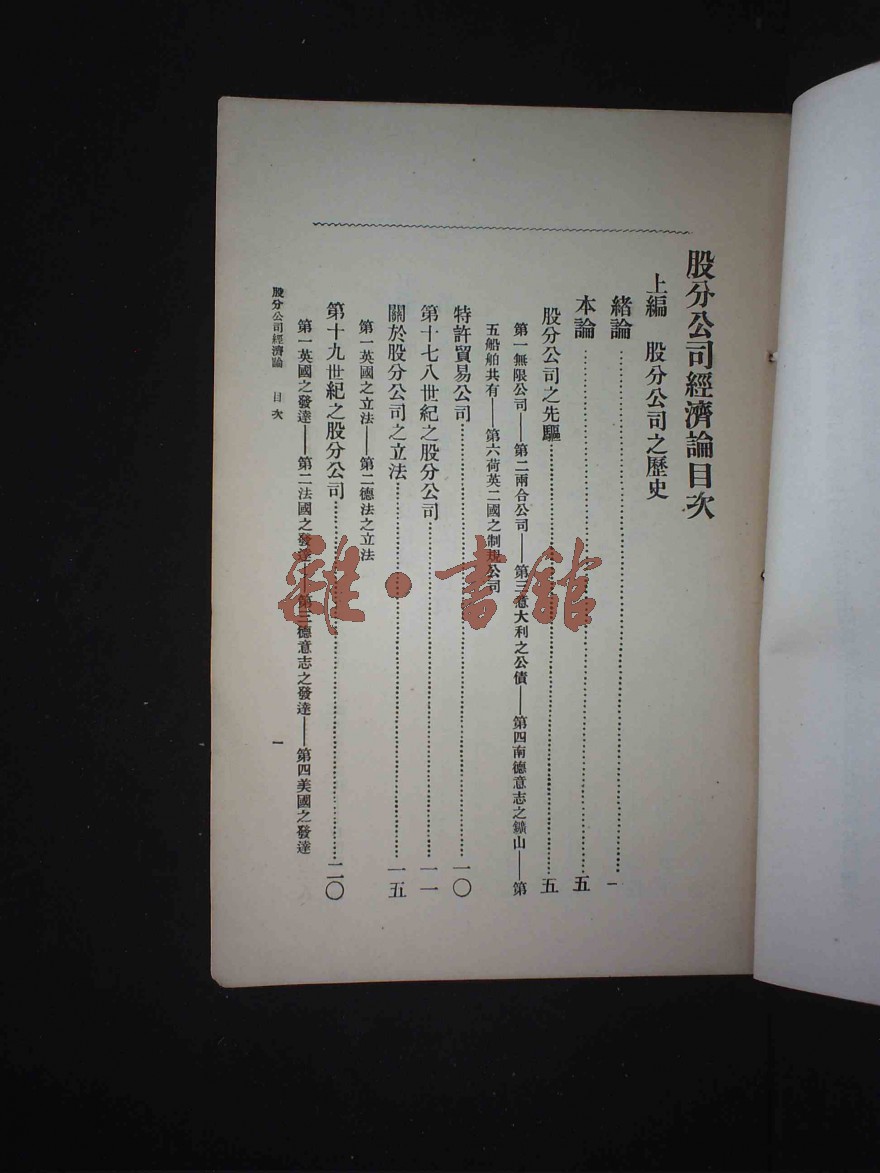 股分公司經濟論目次
上編　股分公司之歷史
緒論……一
本論……五
股分公司之先驅……五
第一無限公司——第二兩合公司——第三意大利之公債——第四南德意志之鑛山——第
五船舶共有——第六荷英二國之制規公司
特許貿易公司……一〇
第十七八世紀之股分公司……一一
關於股分公司之立法……一五
第一英國之立法——第二德法之立法
第十九世紀之股分公司……二〇
第一英國之發達——第二法國之發達——第三德意志之發達——第四美國之發達
股分公司經濟論　目次　一
雜·書館